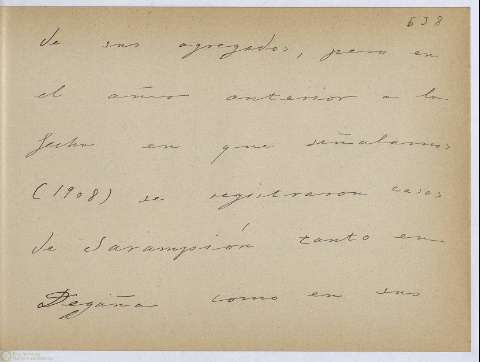 638
de sus agregados, pero en
el año anterior a la
fecha en que señalamos
(1908) se registraron casos
de Sarampión tanto en
Degaña como en sus